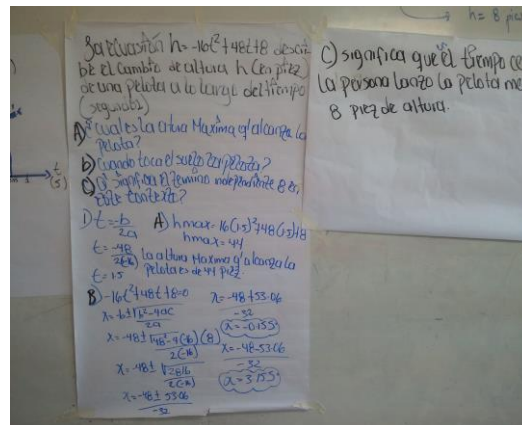 h = 8 piez
La ecuación h=-16t²+48t+8 descri
be el cambio de altura h (en piez)
de una pelota a lo largo del tiempo
(segundos)
A) cual es la altura Maxima q' alcanza la
pelota?
b) Cuando toca el suelo la pelota?
C) Q' significa el termino independiente 8 en
este contexto?
1) t=-b/2a
t=-48/2(-16)
t=1.5
A) hmax=-16(1.5)²+48(1.5)+8
hmax=44
la altura Maxima q' alcanza la
pelota es de 44 piez.
B) -16t²+48t+8=0
x=-b±√b²-4ac/2a
x=-48±√48²-4(-16)(8)/2(-16)
x=-48±√2816/2(-16)
x=-48±53.06/-32
x=-48+53.06/-32
x=-0.155
x=-48-53.06/-32
x=3.155
C) significa que el tiempo ce
la persona lanzo la pelota me
8 piez de altura.
t
(s)